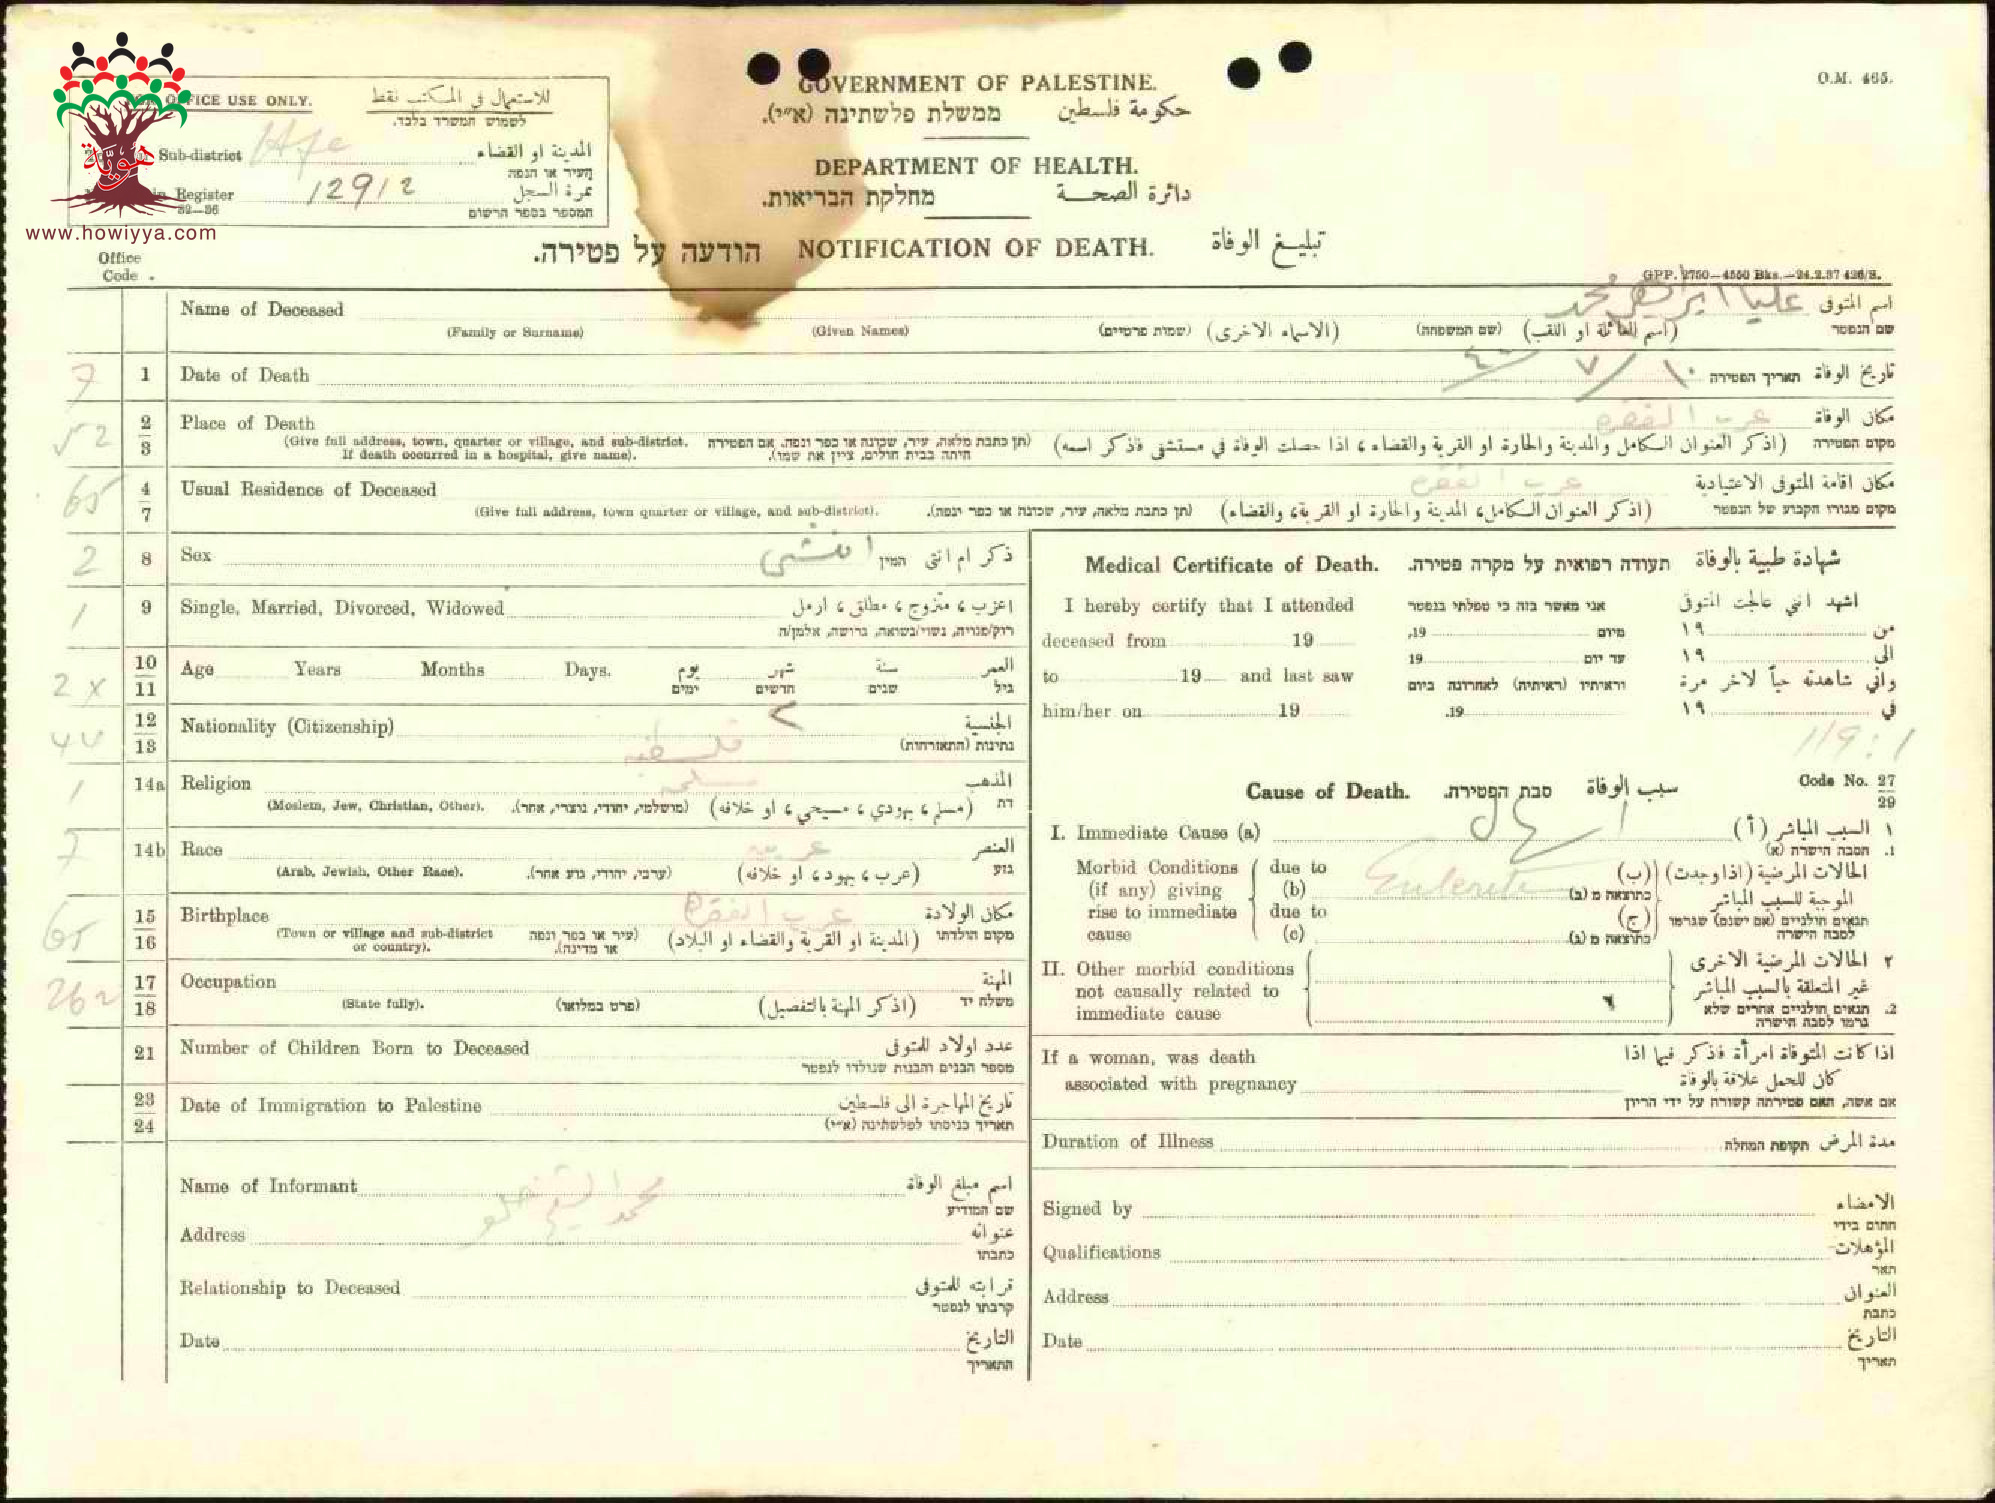 هويّة
www.howiyya.com
O.M. 465.
OFFICE USE ONLY. للاستعمال في المكتب فقط
לשמוש המשרד בלבד.
Sub-district المدينة او القضاء
העיר או הנפה
in Register 12912 نمرة السجل
32—36 המספר בספר הרשום
GOVERNMENT OF PALESTINE.
ממשלת פלשתינה (א״י). حكومة فلسطين
DEPARTMENT OF HEALTH.
מחלקת הבריאות. دائرة الصحة
הודעה על פטירה. NOTIFICATION OF DEATH. تبليغ الوفاة
Office
Code .
GPP. 2750—4550 Bks.—24.2.37 426/S.
Name of Deceased عليا ابراهيم محمد اسم المتوفى
(Family or Surname) (Given Names) (שמות פרטיים) (الاسماء الاخرى) (שם המשפחה) (اسم العائلة او اللقب) שם הנפטר
7 1 Date of Death ١٠/٧/٤٠ תאריך הפטירה تاريخ الوفاة
52 2 3 Place of Death عرب الفقرا مكان الوفاة
(Give full address, town, quarter or village, and sub-district. (תן כתבת מלאה, עיר, שכונה או כפר ונפה. אם הפטירה (اذكر العنوان الكامل والمدينة والحارة او القرية والقضاء، اذا حصلت الوفاة في مستشفى فاذكر اسمه) מקום הפטירה
If death occurred in a hospital, give name). היתה בבית חולים, ציין את שמו).
65 4 7 Usual Residence of Deceased عرب الفقرا مكان اقامة المتوفى الاعتيادية
(Give full address, town quarter or village, and sub-district). (תן כתבת מלאה, עיר, שכונה או כפר ונפה). (اذكر العنوان الكامل، المدينة والحارة او القرية، والقضاء) מקום מגורו הקבוע של הנפטר
2 8 Sex انثى המין ذكر ام انثى
1 9 Single, Married, Divorced, Widowed اعزب، متزوج، مطلق، ارمل
רוק/פנויה, נשוי/נשואה, גרושה, אלמן/ה
2 x 10 11 Age Years Months Days. يوم شهر سنة العمر
ימים חדשים שנים גיל
٢
44 12 13 Nationality (Citizenship) فلسطينية الجنسية
נתינות (התאזרחות)
1 14a Religion مسلمة المذهب
(Moslem, Jew, Christian, Other). (מושלמי, יהודי, נוצרי, אחר). (مسلم، يهودي، مسيحي، او خلافه) דת
7 14b Race عربية العنصر
(Arab, Jewish, Other Race). (ערבי, יהודי, גזע אחר). (عرب، يهود، او خلافه) גזע
65 15 16 Birthplace عرب الفقرا مكان الولادة
(Town or village and sub-district or country). (עיר או כפר ונפה או מדינה). (المدينة او القرية والقضاء او البلاد) מקום הולדתו
262 17 18 Occupation المهنة
(State fully). (פרט במלואו) (اذكر المهنة بالتفصيل) משלח יד
21 Number of Children Born to Deceased عدد اولاد المتوفى
מספר הבנים והבנות שנולדו לנפטר
23 24 Date of Immigration to Palestine تاريخ المهاجرة الى فلسطين
תאריך כניסתו לפלשתינה (א״י)
Name of Informant محمد الشيخ اسم مبلغ الوفاة
שם המודיע
Address عنوانه
כתבתו
Relationship to Deceased قرابته للمتوفى
קרבתו לנפטר
Date التاريخ
התאריך
Medical Certificate of Death. תעודה רפואית על מקרה פטירה. شهادة طبية بالوفاة
I hereby certify that I attended אני מאשר בזה כי טפלתי בנפטר اشهد انني عالجت المتوفى
deceased from 19 מיום 19, من ١٩
to 19 and last saw עד יום 19 الى ١٩
וראיתיו (ראיתיה) לאחרונה ביום واني شاهدته حياً لاخر مرة
him/her on 19 19. في ١٩
119:1
Cause of Death. סבת הפטירה. سبب الوفاة Code No. 27 29
I. Immediate Cause (a) اسهال السبب المباشر (أ) ١
הסבה הישרה (א) 1.
Morbid Conditions due to الحالات المرضية (اذا وجدت) (ب)
(if any) giving (b) כתוצאה מ (ב) الموجبة للسبب المباشر
rise to immediate due to (ج) תנאים חולניים (אם ישנם) שגרמו
cause (c) כתוצאה מ (ג) לסבה הישרה
II. Other morbid conditions الحالات المرضية الاخرى ٢
not causally related to غير المتعلقة بالسبب المباشر
immediate cause תנאים חולניים אחרים שלא 2.
גרמו לסבה הישרה
If a woman, was death اذا كانت المتوفاة امرأة فذكر فيما اذا
associated with pregnancy كان للحمل علاقة بالوفاة
אם אשה, האם פטירתה קשורה על ידי הריון
Duration of Illness תקופת המחלה مدة المرض
Signed by الامضاء
חתום בידי
Qualifications المؤهلات
תאר
Address العنوان
כתבת
Date التاريخ
תאריך